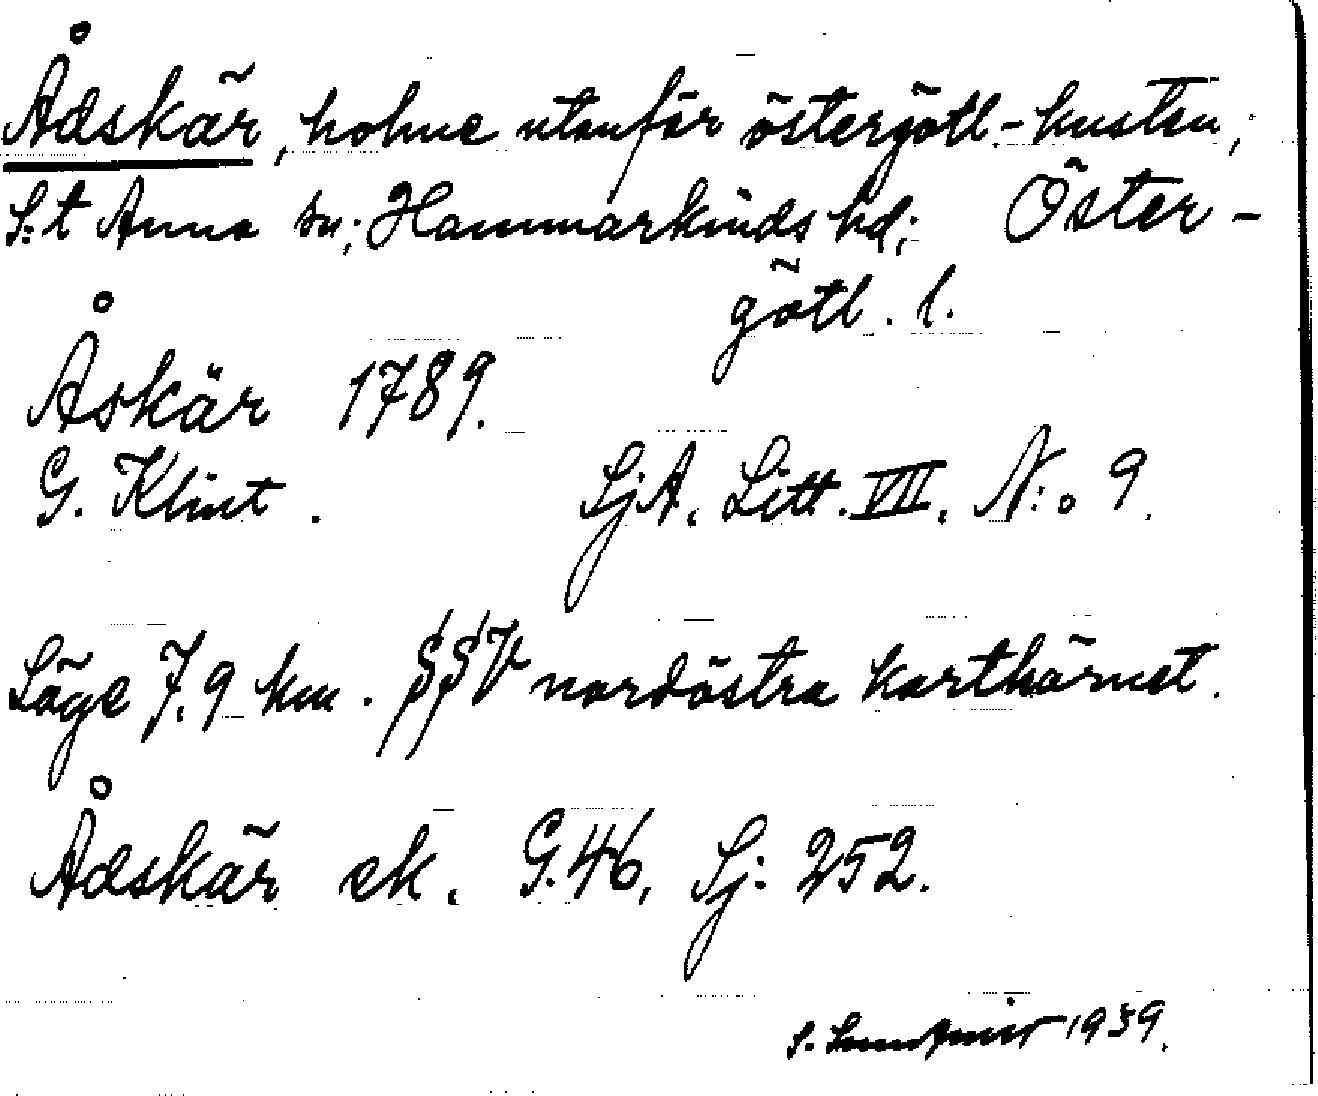 Ådskär, holme utanför östergötl.-kusten,
S:t Anna sn; Hammarkinds hd; Öster-
götl. l.
Åskär 1789.
G. Klint. SjA. Litt. VII. N:o 9.
Läge 7,9 km. SSV nordöstra karthörnet.
Ådskär ek. G.46, Sj: 252.
S. 1939.